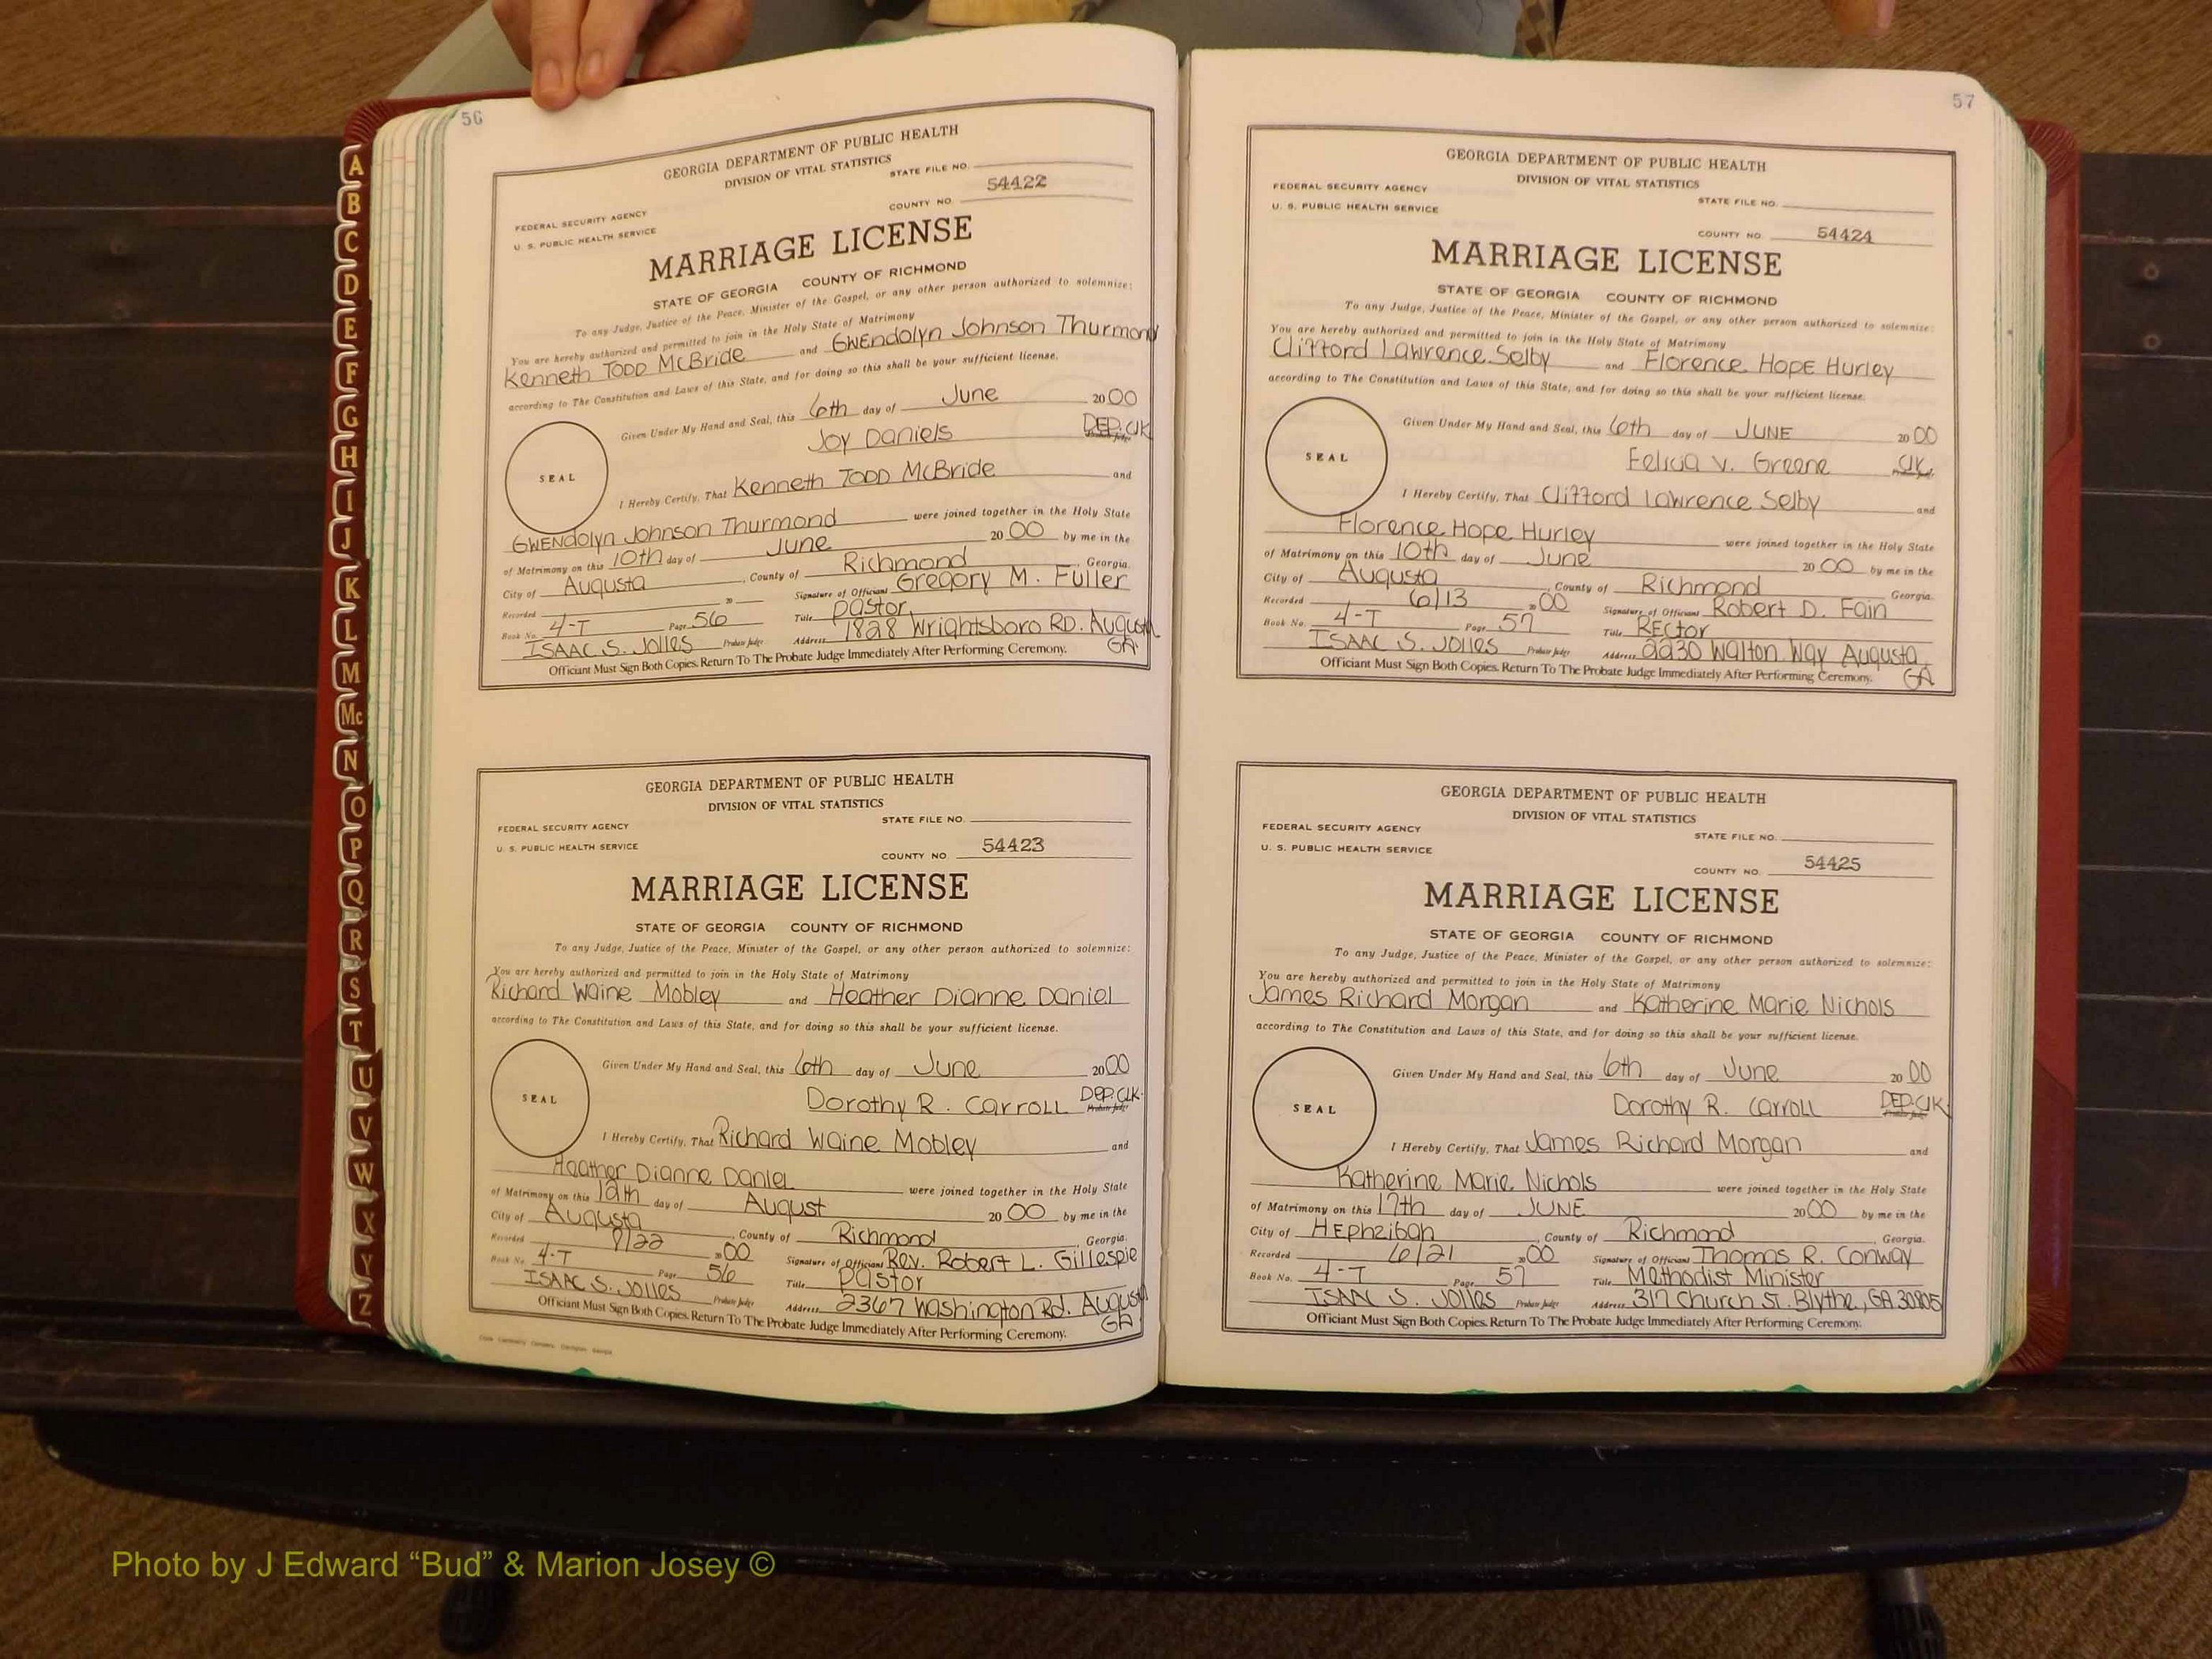 56
GEORGIA DEPARTMENT OF PUBLIC HEALTH
DIVISION OF VITAL STATISTICS
STATE FILE NO.
54422
FEDERAL SECURITY AGENCY
COUNTY NO.
U. S. PUBLIC HEALTH SERVICE
MARRIAGE LICENSE
STATE OF GEORGIA COUNTY OF RICHMOND
To any Judge, Justice of the Peace, Minister of the Gospel, or any other person authorized to solemnize:
You are hereby authorized and permitted to join in the Holy State of Matrimony
Kenneth TODD McBride and GWENdolyn Johnson Thurmond
according to The Constitution and Laws of this State, and for doing so this shall be your sufficient license.
Given Under My Hand and Seal, this 6th day of June 20 00
Joy Daniels DEP. CLK
SEAL
I Hereby Certify, That Kenneth TODD McBride and
GWENdolyn Johnson Thurmond were joined together in the Holy State
of Matrimony on this 10th day of June 20 00 by me in the
City of Augusta, County of Richmond, Georgia.
Recorded 20 Signature of Officiant Gregory M. Fuller
Book No. 4-T Page 56 Title Pastor
ISAAC S. Jolles Probate Judge Address 1828 Wrightsboro RD. Augusta
GA
Officiant Must Sign Both Copies. Return To The Probate Judge Immediately After Performing Ceremony.
GEORGIA DEPARTMENT OF PUBLIC HEALTH
DIVISION OF VITAL STATISTICS
STATE FILE NO.
FEDERAL SECURITY AGENCY
54423
U. S. PUBLIC HEALTH SERVICE
COUNTY NO.
MARRIAGE LICENSE
STATE OF GEORGIA COUNTY OF RICHMOND
To any Judge, Justice of the Peace, Minister of the Gospel, or any other person authorized to solemnize:
You are hereby authorized and permitted to join in the Holy State of Matrimony
Richard Waine Mobley and Heather Dianne Daniel
according to The Constitution and Laws of this State, and for doing so this shall be your sufficient license.
Given Under My Hand and Seal, this 6th day of June 20 00
Dorothy R. Carroll DEP. CLK.
SEAL
I Hereby Certify, That Richard Waine Mobley and
Heather Dianne Daniel were joined together in the Holy State
of Matrimony on this 12th day of August 20 00 by me in the
City of Augusta, County of Richmond, Georgia.
Recorded 20 00 Signature of Officiant Rev. Robert L. Gillespie
Book No. 4-T Page 56 Title Pastor
ISAAC S. Jolles Probate Judge Address 2367 Washington Rd. Augusta
GA
Officiant Must Sign Both Copies. Return To The Probate Judge Immediately After Performing Ceremony.
57
GEORGIA DEPARTMENT OF PUBLIC HEALTH
DIVISION OF VITAL STATISTICS
FEDERAL SECURITY AGENCY
STATE FILE NO.
U. S. PUBLIC HEALTH SERVICE
COUNTY NO. 54424
MARRIAGE LICENSE
STATE OF GEORGIA COUNTY OF RICHMOND
To any Judge, Justice of the Peace, Minister of the Gospel, or any other person authorized to solemnize:
You are hereby authorized and permitted to join in the Holy State of Matrimony
Clifford Lawrence Selby and Florence HOPE Hurley
according to The Constitution and Laws of this State, and for doing so this shall be your sufficient license.
Given Under My Hand and Seal, this 6th day of JUNE 20 00
Felicia V. Greene CLK
SEAL
I Hereby Certify, That Clifford Lawrence Selby and
Florence Hope Hurley were joined together in the Holy State
of Matrimony on this 10th day of June 20 00 by me in the
City of Augusta, County of Richmond Georgia.
Recorded 6/13 20 00 Signature of Officiant Robert D. Fain
Book No. 4-T Page 57 Title REctor
ISAAC S. Jolles Probate Judge Address 2230 Walton Way Augusta,
GA
Officiant Must Sign Both Copies. Return To The Probate Judge Immediately After Performing Ceremony.
GEORGIA DEPARTMENT OF PUBLIC HEALTH
DIVISION OF VITAL STATISTICS
FEDERAL SECURITY AGENCY
STATE FILE NO.
U. S. PUBLIC HEALTH SERVICE
COUNTY NO. 54425
MARRIAGE LICENSE
STATE OF GEORGIA COUNTY OF RICHMOND
To any Judge, Justice of the Peace, Minister of the Gospel, or any other person authorized to solemnize:
You are hereby authorized and permitted to join in the Holy State of Matrimony
James Richard Morgan and Katherine Marie Nichols
according to The Constitution and Laws of this State, and for doing so this shall be your sufficient license.
Given Under My Hand and Seal, this 6th day of June 20 00
Dorothy R. Carroll DEP. CLK
SEAL
I Hereby Certify, That James Richard Morgan and
Katherine Marie Nichols were joined together in the Holy State
of Matrimony on this 17th day of JUNE 20 00 by me in the
City of HEphzibah, County of Richmond, Georgia.
Recorded 6/21 20 00 Signature of Officiant Thomas R. Conway
Book No. 4-T Page 57 Title Methodist Minister
ISAAC S. Jolles Probate Judge Address 317 Church ST. Blythe, GA 30805
Officiant Must Sign Both Copies. Return To The Probate Judge Immediately After Performing Ceremony.
A
B
C
D
E
F
G
H
I
J
K
L
M
Mc
N
O
P
Q
R
S
T
U
V
W
X
Y
Z
Photo by J Edward “Bud” & Marion Josey ©